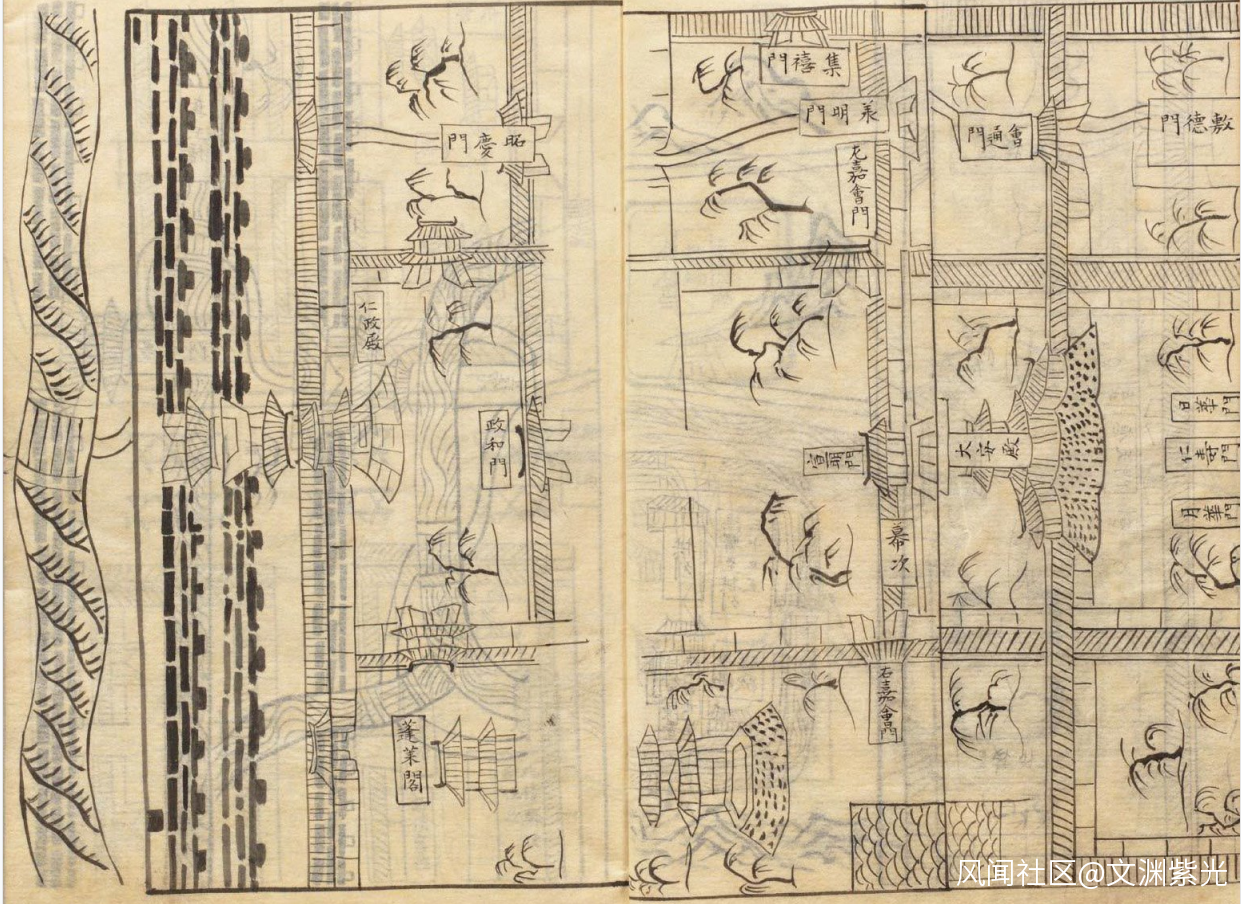 集禧門
承明門
昭慶門
會通門
敷德門
左嘉會門
仁政殿
政和門
宣明門
大安殿
日華門
仁壽門
月華門
幕次
右嘉會門
蓬萊閣
风闻社区@文渊紫光